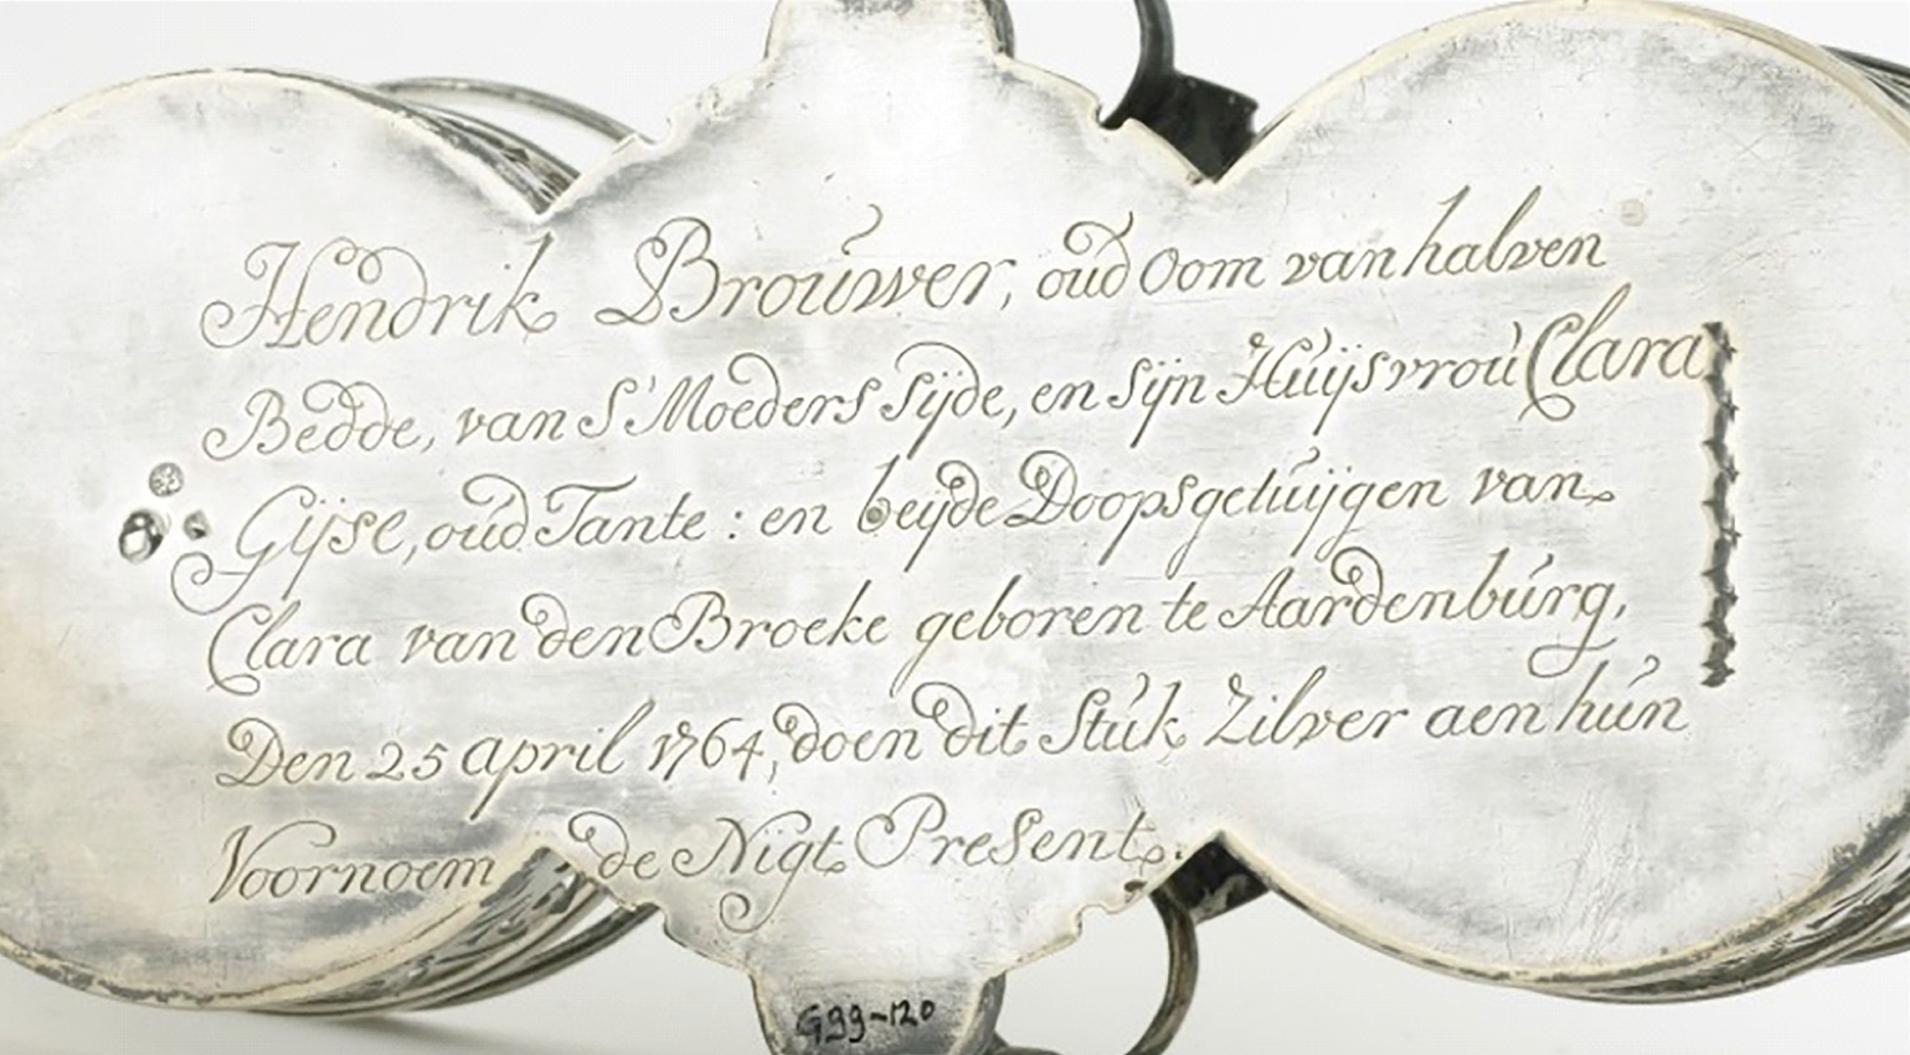 Hendrik Brouwer, oud Oom van halven
Bedde, van S'Moeders Sijde, en Sijn Huijsvrou Clara
Gijse, oud Tante : en beijde Doopsgetuijgen van
Clara van den Broeke geboren te Aardenburg,
Den 25 april 1764, doen dit Stuk Zilver aen hun
Voornoem de Nigt Present.
G99-120